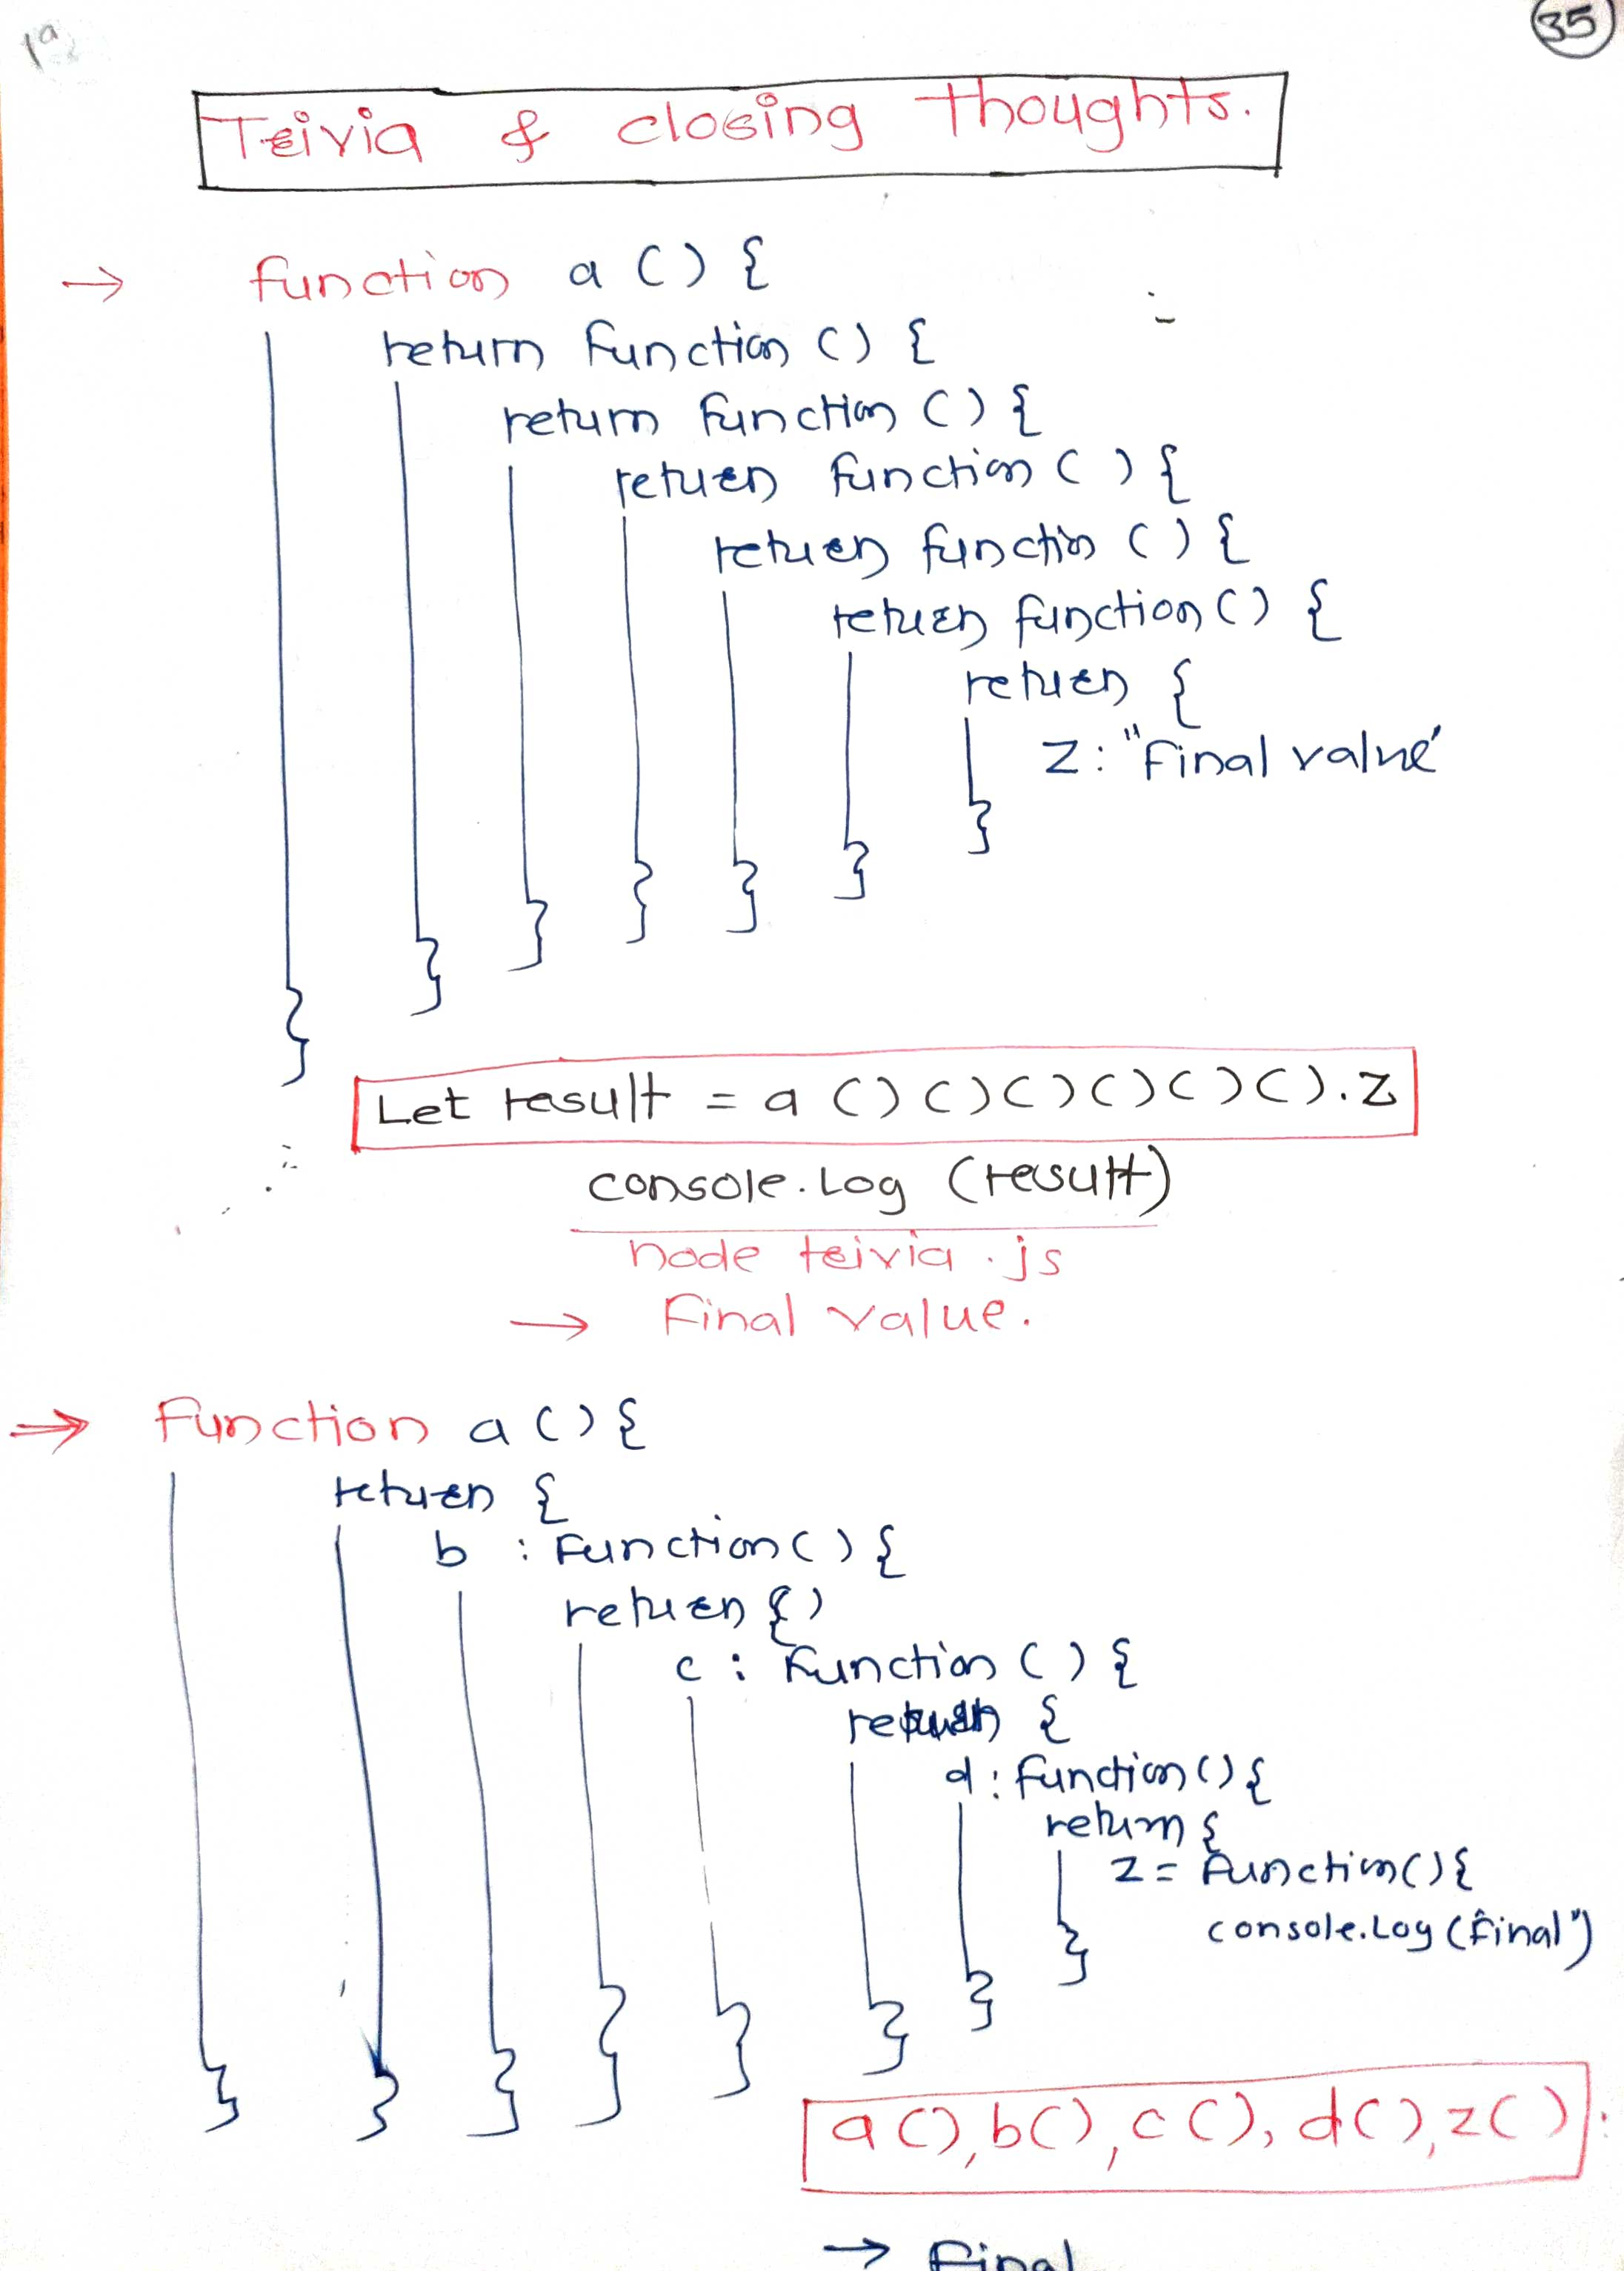 1a
35
Trivia & closing thoughts.
→ function a () {
return function () {
return function () {
return function () {
return function () {
return function () {
return {
z: "Final value"
}
}
}
}
}
}
}
Let result = a ()()()()()().z
console.log (result)
node trivia.js
→ Final value.
→ Function a () {
return {
b : Function () {
return { }
c : Function () {
return {
d : function () {
return {
z = Function () {
console.log (final")
}
}
}
}
}
}
}
}
a (), b (), c (), d (), z () :
→ Final